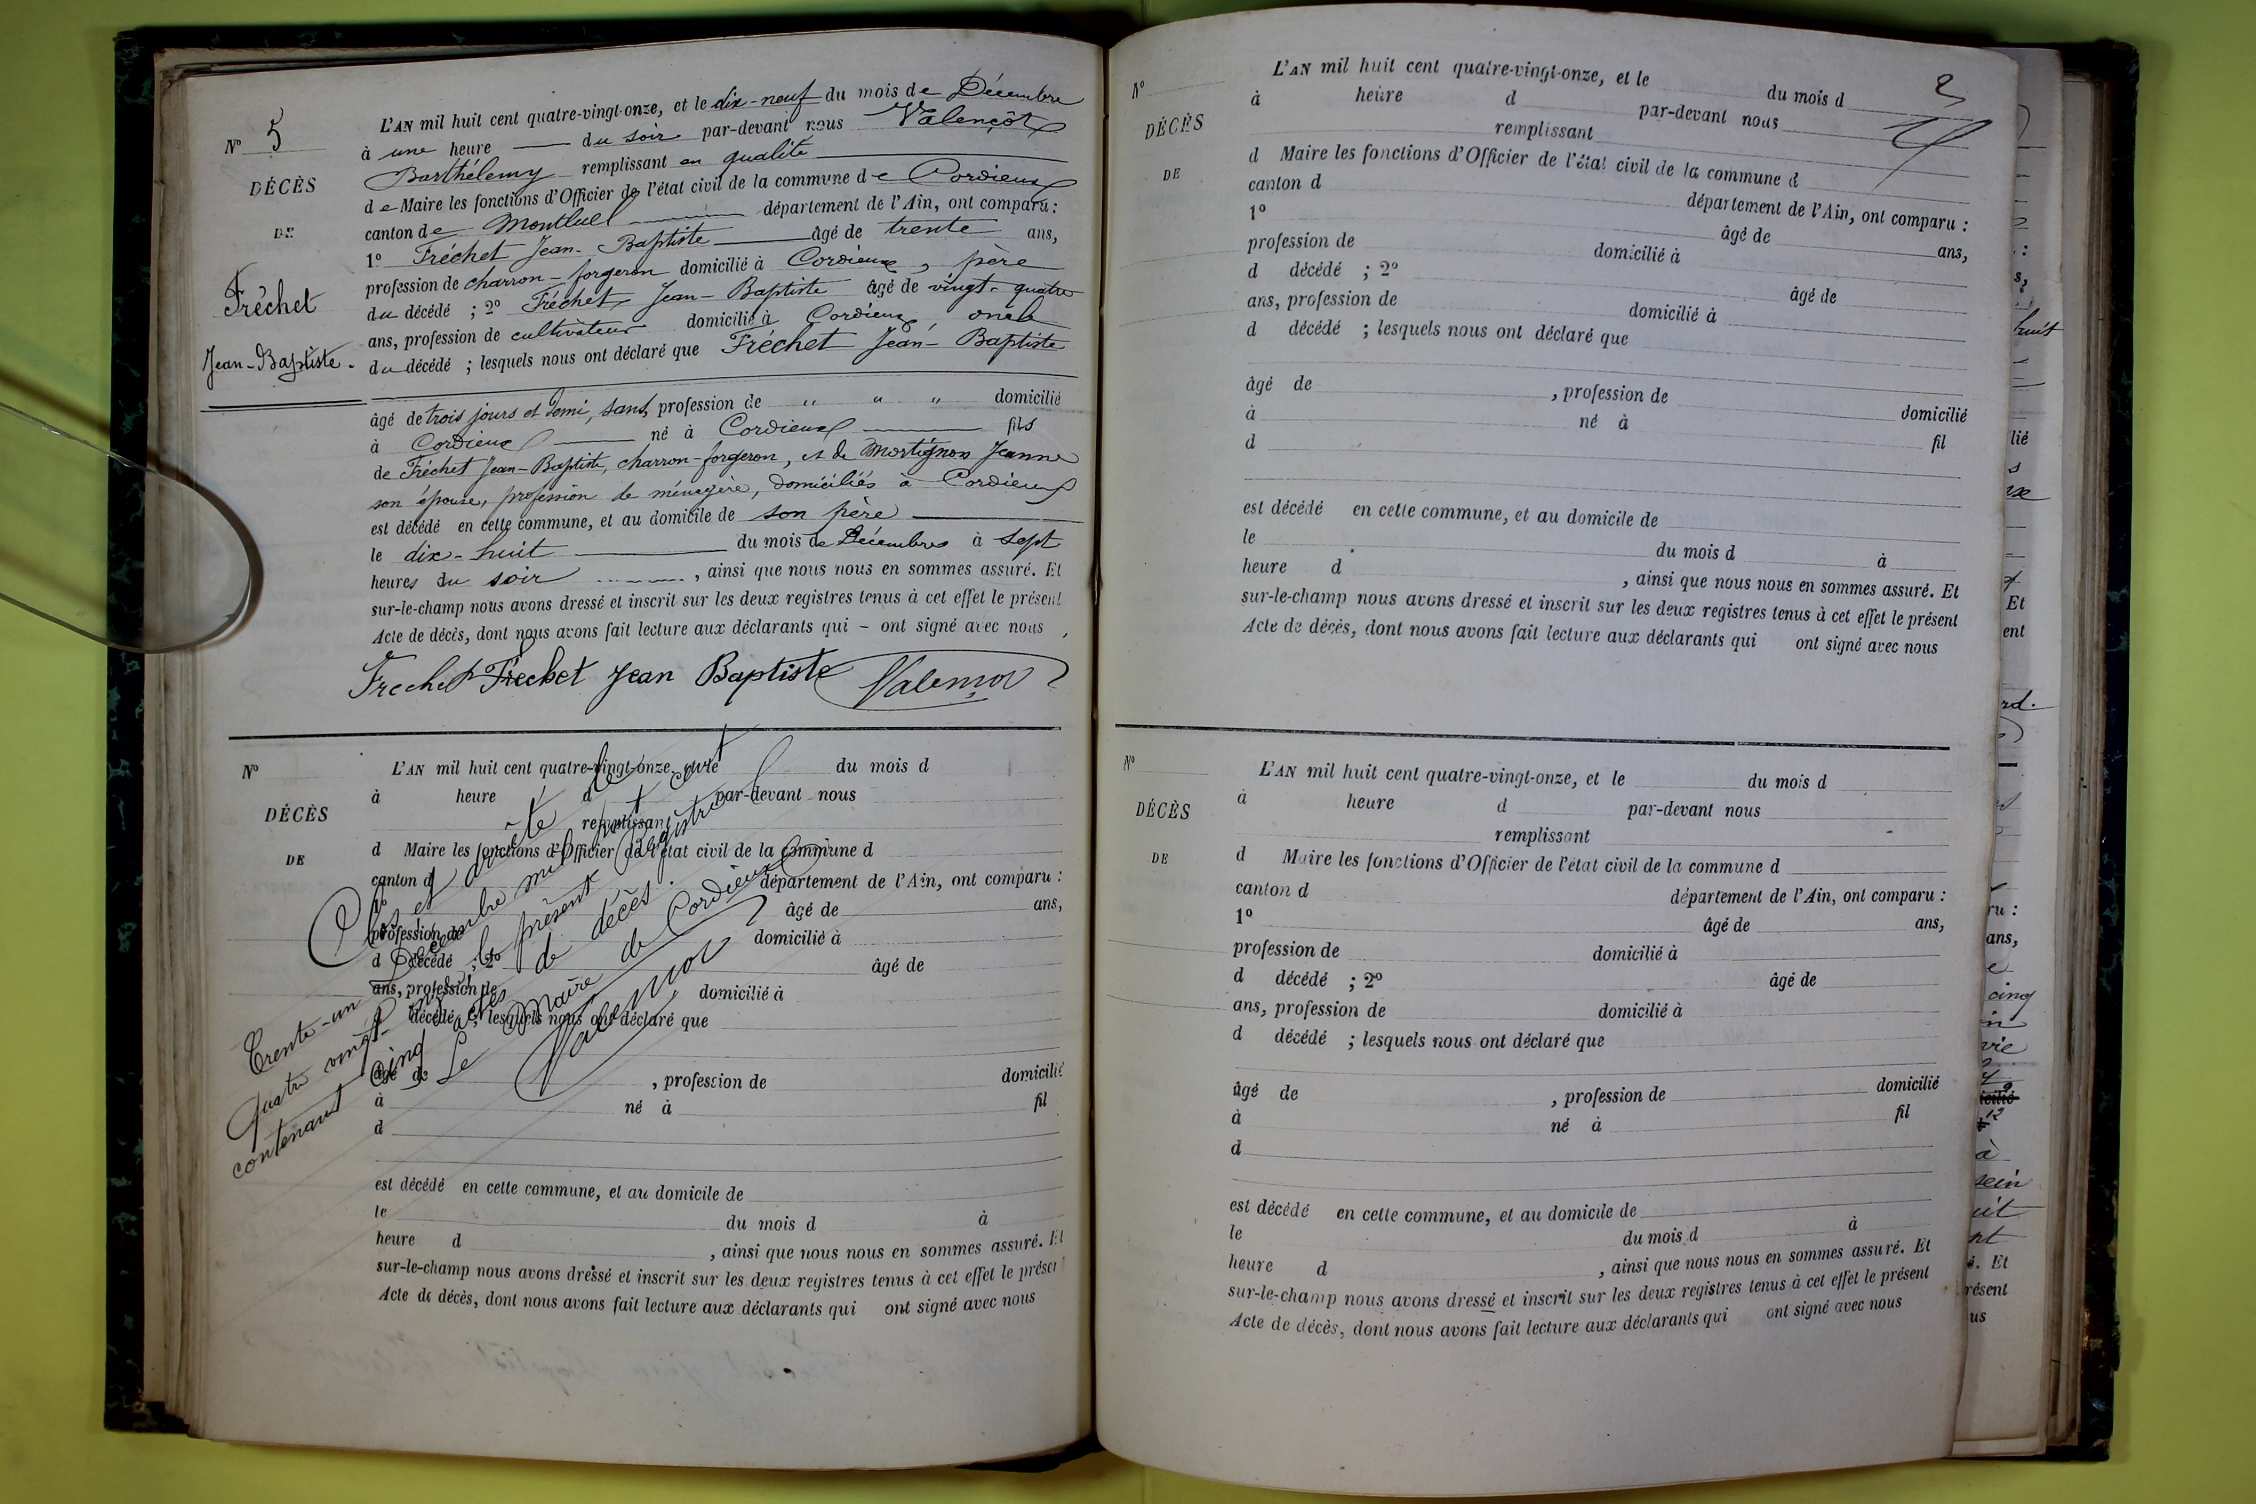 N° 5
DÉCÈS
DE
Fréchet
Jean-Baptiste.
L'AN mil huit cent quatre-vingt-onze, et le dix-neuf du mois de Décembre
à une heure du soir par-devant nous Valençôt
Barthélemy remplissant en qualité
de Maire les fonctions d'Officier de l'état civil de la commune de Cordieux
canton de Montluel département de l'Ain, ont comparu :
1° Fréchet Jean-Baptiste âgé de trente ans,
profession de charron-forgeron domicilié à Cordieux, père
du décédé ; 2° Fréchet Jean-Baptiste âgé de vingt-quatre
ans, profession de cultivateur domicilié à Cordieux, oncle
du décédé ; lesquels nous ont déclaré que Fréchet Jean-Baptiste
âgé de trois jours et demi, sans profession de " " " domicilié
à Cordieux né à Cordieux fils
de Fréchet Jean-Baptiste, charron-forgeron, et de Mortignon Jeanne
son épouse, profession de ménagère, domiciliés à Cordieux
est décédé en cette commune, et au domicile de son père
le dix-huit du mois de Décembre à sept
heures du soir, ainsi que nous nous en sommes assuré. Et
sur-le-champ nous avons dressé et inscrit sur les deux registres tenus à cet effet le présent
Acte de décès, dont nous avons fait lecture aux déclarants qui - ont signé avec nous,
Frechet Frechet Jean Baptiste Valençot
N°
DÉCÈS
DE
L'AN mil huit cent quatre-vingt-onze, et le du mois d
à heure d par-devant nous
remplissant
d Maire les fonctions d'Officier de l'état civil de la commune d
canton d département de l'Ain, ont comparu :
1° âgé de ans,
profession de domicilié à
d décédé ; 2° âgé de
ans, profession de domicilié à
d décédé ; lesquels nous ont déclaré que
âgé de , profession de domicilié
à né à fil
d
est décédé en cette commune, et au domicile de
le du mois d à
heure d , ainsi que nous nous en sommes assuré. Et
sur-le-champ nous avons dressé et inscrit sur les deux registres tenus à cet effet le présent
Acte de décès, dont nous avons fait lecture aux déclarants qui ont signé avec nous
Clos et arrêté le
Trente-un Décembre mil huit cent
quatre vingt-onze, le présent Registre
contenant cinq actes de décès.
Le Maire de Cordieux
Valençot
2
N°
DÉCÈS
DE
L'AN mil huit cent quatre-vingt-onze, et le du mois d
à heure d par-devant nous
remplissant
d Maire les fonctions d'Officier de l'état civil de la commune d
canton d département de l'Ain, ont comparu :
1° âgé de ans,
profession de domicilié à
d décédé ; 2° âgé de
ans, profession de domicilié à
d décédé ; lesquels nous ont déclaré que
âgé de , profession de domicilié
à né à fil
d
est décédé en cette commune, et au domicile de
le du mois d à
heure d , ainsi que nous nous en sommes assuré. Et
sur-le-champ nous avons dressé et inscrit sur les deux registres tenus à cet effet le présent
Acte de décès, dont nous avons fait lecture aux déclarants qui ont signé avec nous
N°
DÉCÈS
DE
L'AN mil huit cent quatre-vingt-onze, et le du mois d
à heure d par-devant nous
remplissant
d Maire les fonctions d'Officier de l'état civil de la commune d
canton d département de l'Ain, ont comparu :
1° âgé de ans,
profession de domicilié à
d décédé ; 2° âgé de
ans, profession de domicilié à
d décédé ; lesquels nous ont déclaré que
âgé de , profession de domicilié
à né à fil
d
est décédé en cette commune, et au domicile de
le du mois d à
heure d , ainsi que nous nous en sommes assuré. Et
sur-le-champ nous avons dressé et inscrit sur les deux registres tenus à cet effet le présent
Acte de décès, dont nous avons fait lecture aux déclarants qui ont signé avec nous